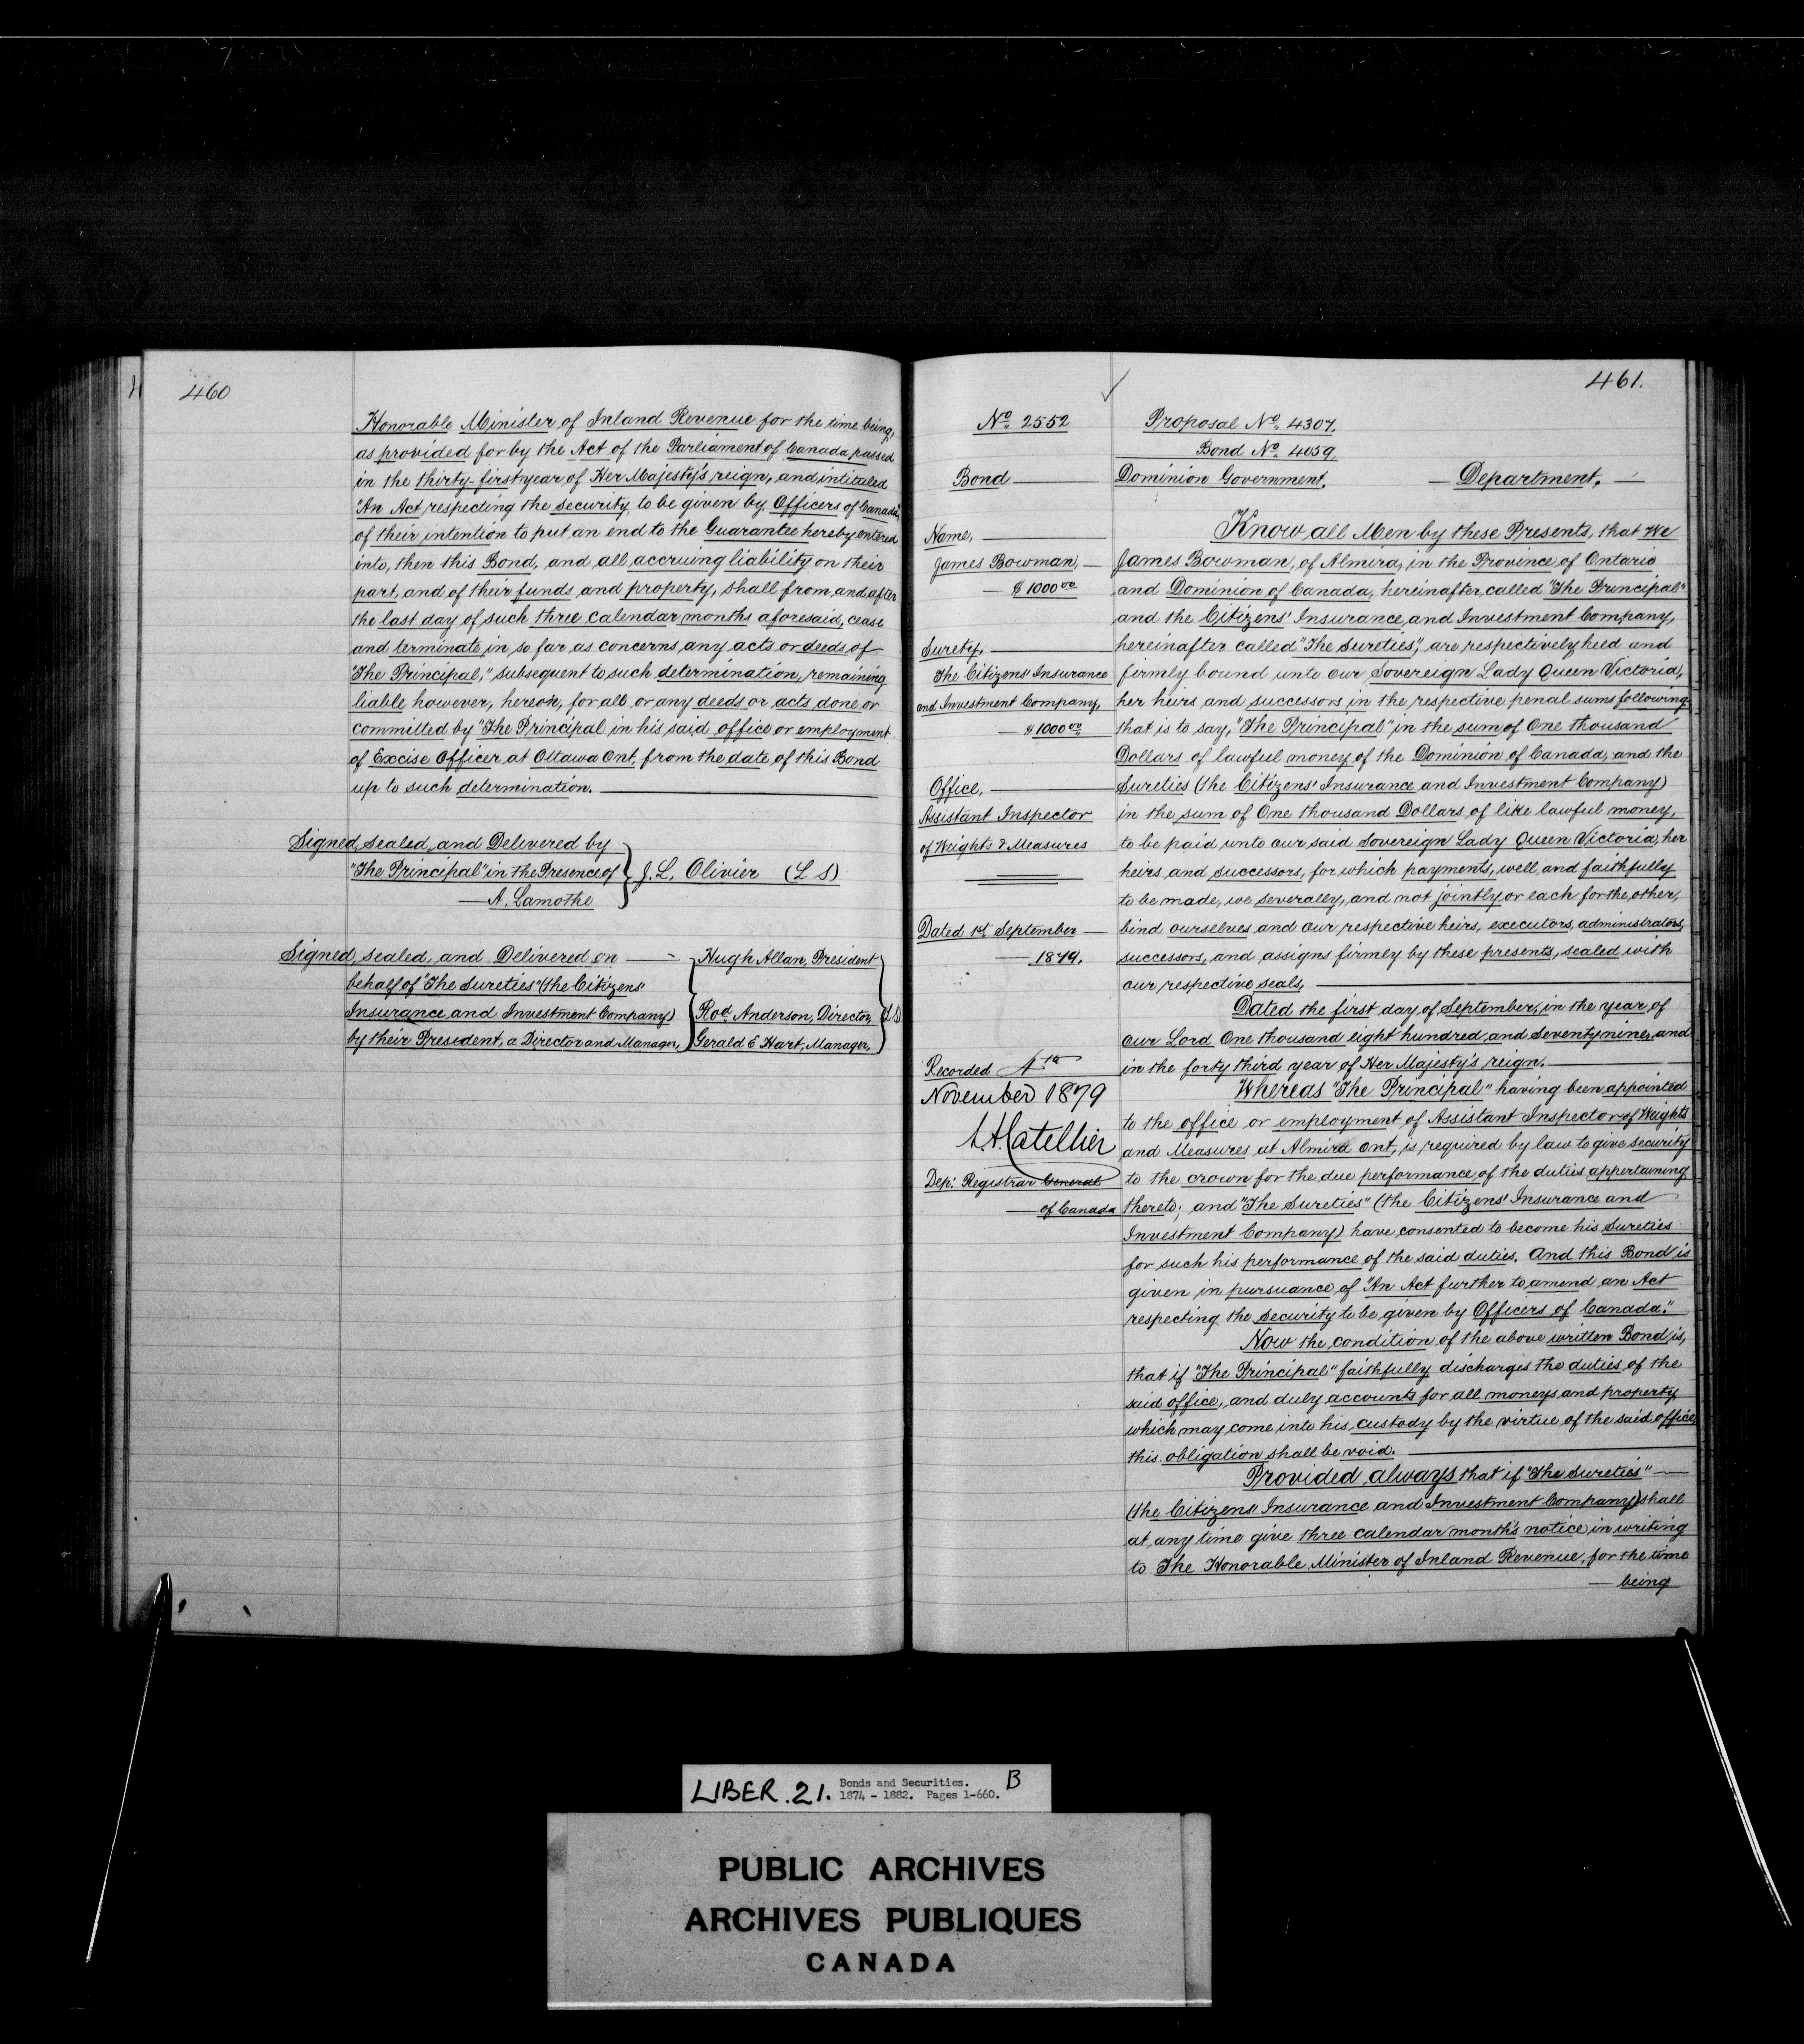 460
Honorable Minister of Inland Revenue for the time being,
as provided for by the Act of the Parliament of Canada passed
in the thirty-first year of Her Majesty's reign, and intituled
"An Act respecting the security to be given by Officers of Canada",
of their intention to put an end to the Guarantee hereby entered
into, then this Bond, and all accruing liability on their
part, and of their funds and property, shall from and after
the last day of such three calendar months aforesaid, cease
and terminate in so far as concerns any acts or deeds of
"The Principal," subsequent to such determination, remaining
liable however, hereon, for all or any deeds or acts done or
committed by "The Principal in his said office or employment
of Excise Officer at Ottawa Ont, from the date of this Bond
up to such determination.
Signed, sealed, and Delivered by
"The Principal" in the Presence of
A. Lamothe
J. L. Olivier (L S)
Signed, sealed, and Delivered on
behalf of "The Sureties" (the Citizens'
Insurance and Investment Company)
by their President, a Director and Manager,
Hugh Allan, President
Rod. Anderson, Director,
Gerald E Hart, Manager,
(L S)
461.
No. 2552
Bond
Name,
James Bowman,
$1000.00
Surety,
The Citizens' Insurance
and Investment Company,
$1000.00
Office,
Assistant Inspector
of Weights & Measures
Dated 1st September
1879.
Recorded 4th
November 1879
Dep: Registrar General
of Canada
Proposal No. 4307.
Bond No. 4059.
Dominion Government, Department,
Know all Men by these Presents, that We
James Bowman, of Almira, in the Province of Ontario
and Dominion of Canada, hereinafter called "The Principal"
and the Citizens' Insurance and Investment Company,
hereinafter called "The Sureties", are respectively held and
firmly bound unto our Sovereign Lady Queen Victoria,
her heirs and successors in the respective penal sums following
that is to say, "The Principal" in the sum of One thousand
Dollars of lawful money of the Dominion of Canada, and the
Sureties (the Citizens' Insurance and Investment Company)
in the sum of One thousand Dollars of like lawful money,
to be paid unto our said Sovereign Lady Queen Victoria, her
heirs and successors, for which payments, well and faithfully
to be made, we severally, and not jointly or each for the other,
bind ourselves and our respective heirs, executors, administrators,
successors, and assigns firmly by these presents, sealed with
our respective seals,
Dated the first day of September, in the year of
our Lord One thousand eight hundred and Seventy nine, and
in the forty third year of Her Majesty's reign.
Whereas "The Principal" having been appointed
to the office or employment of Assistant Inspector of Weights
and Measures at Almira Ont, is required by law to give security
to the crown for the due performance of the duties appertaining
thereto; and "The Sureties" (the Citizens' Insurance and
Investment Company) have consented to become his Sureties
for such his performance of the said duties. And this Bond is
given in pursuance of "An Act further to amend an Act
respecting the security to be given by Officers of Canada."
Now the condition of the above written Bond is,
that if "The Principal" faithfully discharges the duties of the
said office, and duly accounts for all moneys and property
which may come into his custody by the virtue of the said office,
this obligation shall be void.
Provided always that if "The Sureties"
(the Citizens' Insurance and Investment Company) shall
at any time give three calendar month's notice in writing
to The Honorable Minister of Inland Revenue, for the time
being
LIBER.21. Bonds and Securities. B
1874 - 1882. Pages 1-660.
PUBLIC ARCHIVES
ARCHIVES PUBLIQUES
CANADA